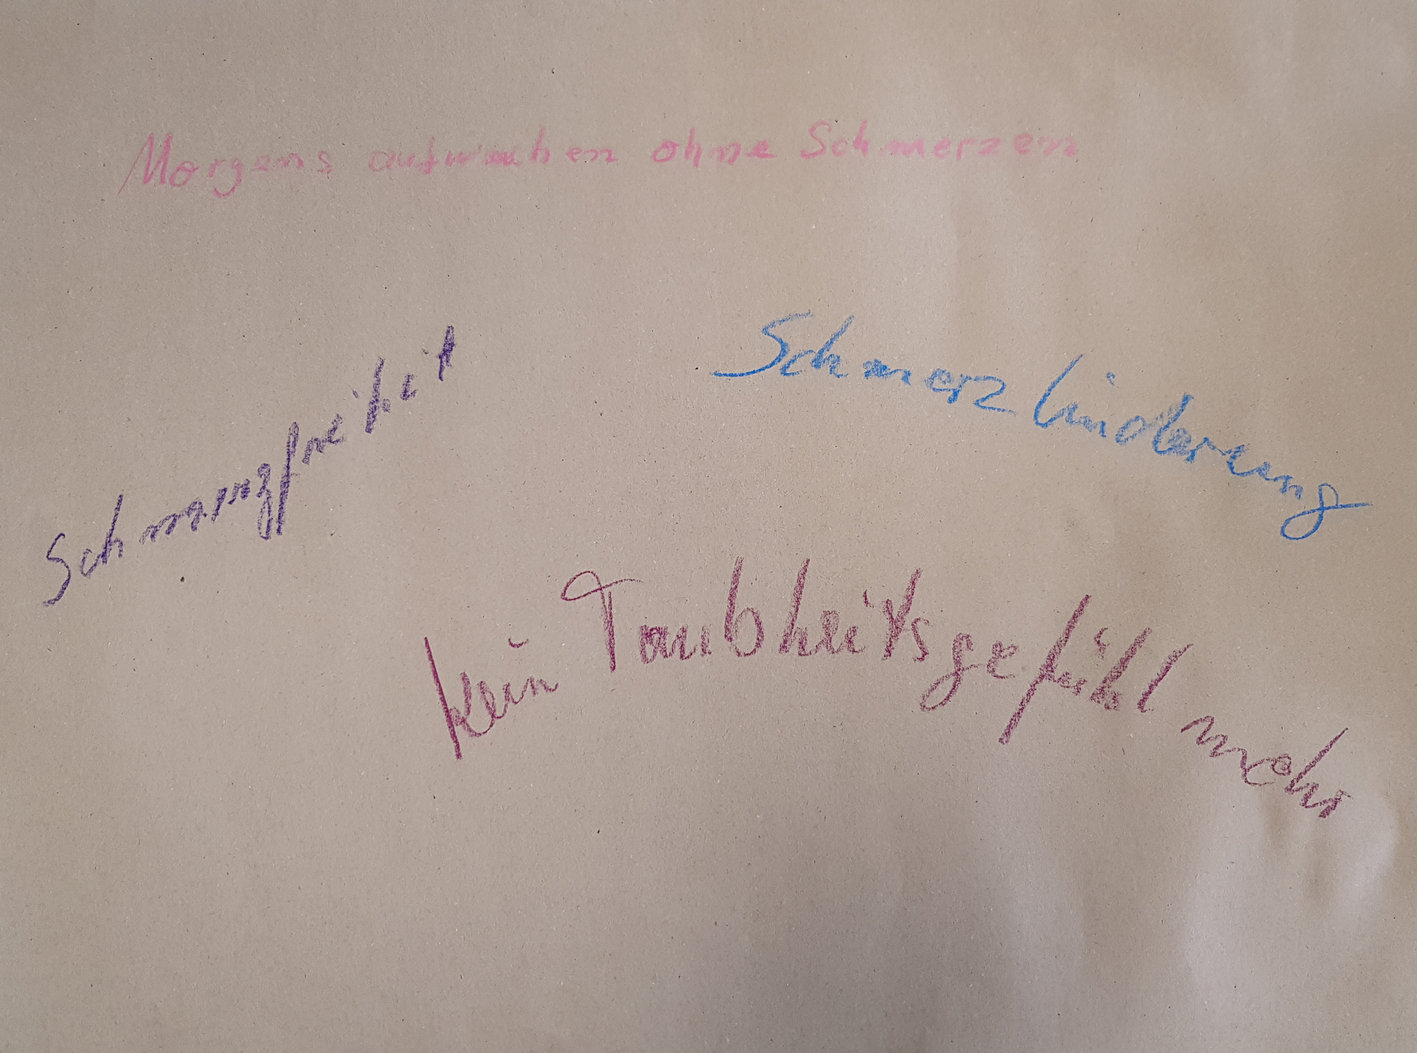 Morgens aufwachen ohne Schmerzen
Schmerzfreiheit
Schmerzlinderung
kein Taubheitsgefühl mehr